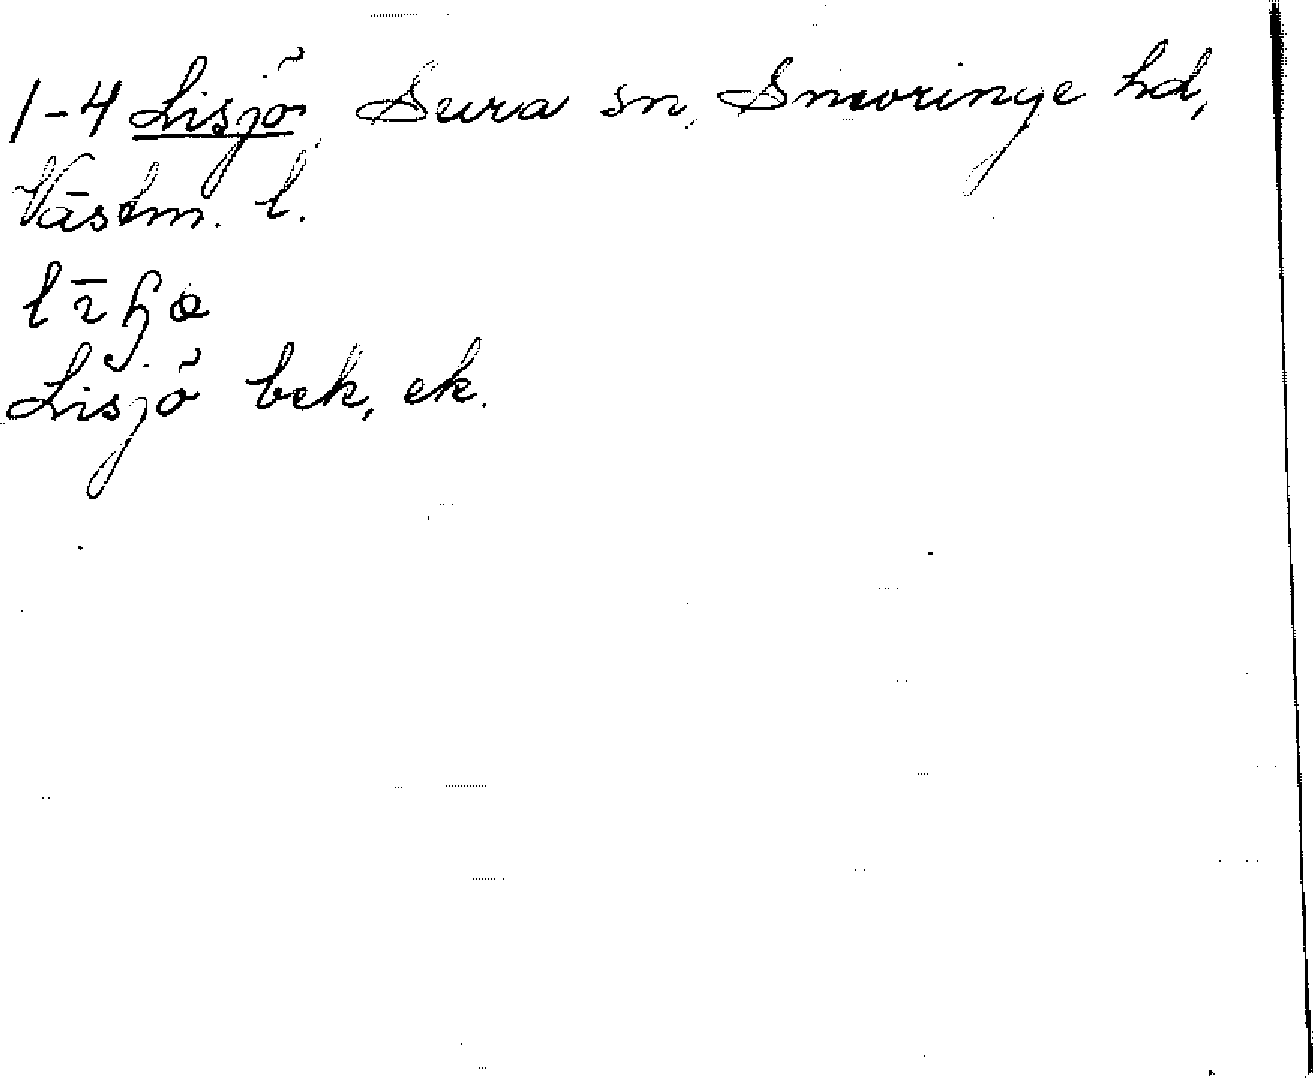 1-4 Lisjö, Sura sn, Snevringe hd,
Västm. l.
Lisjö bek, ek.